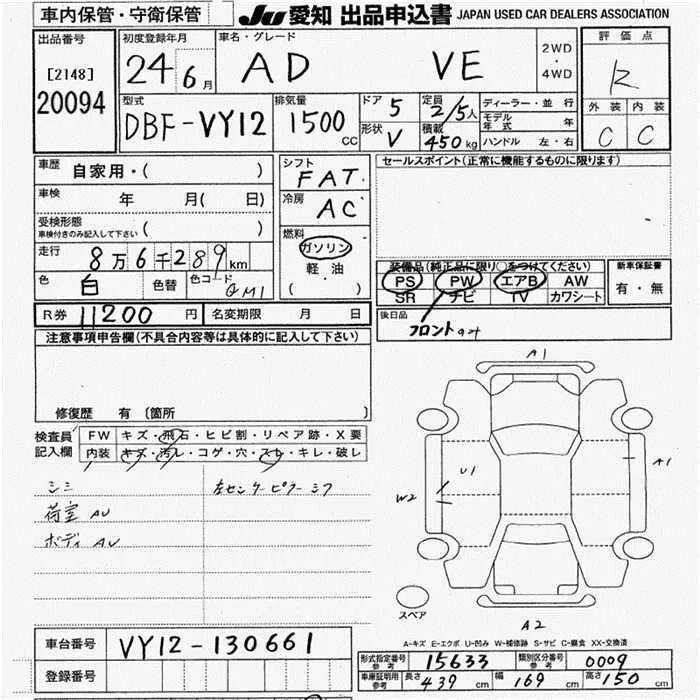 車内保管・守衛保管 JU 愛知 出品申込書 JAPAN USED CAR DEALERS ASSOCIATION
出品番号 初度登録年月 車名・グレード 2WD ・ 4WD 評価点
[2148] 24 6月 AD VE R
20094 外装 内装
型式 排気量 ドア 5 定員 2/5人 ディーラー・並行 C C
DBF-VY12 1500 CC 形状 V 積載 450kg モデル年式 年
ハンドル 左・右
車歴 自家用・( ) シフト FAT セールスポイント(正常に機能するものに限ります)
車検 年 月( 日) 冷房 AC
受検形態 車検付きのみ記入して下さい ( ) 燃料
走行 8万6千289km ガソリン 装備品(純正品に限り○をつけてください) 新車保証書
色 白 色替 色コード QM1 軽油 PS PW エアB AW 有・無
( ・ ) SR ナビ TV カワシート
R券 11200円 名変期限 月 日 後日品 フロントのみ
注意事項申告欄(不具合内容等は具体的に記入して下さい)
修復歴 有 〔箇所 〕
検査員 FW キズ・飛石・ヒビ割・リペア跡・X要
記入欄 内装 キズ・汚レ・コゲ・穴・スレ・キレ・破レ
シミ 左センターピラーシワ
荷室 AU
ボディ AU
A1
U1
W2
A1
スペア
A2
A-キズ E-エクボ U-凹み W-補修跡 S-サビ C-腐食 XX-交換済
車台番号 VY12-130661 形式指定番号 参考 15633 類別区分番号 参考 0009
登録番号 車庫証明用 参考 長さ 439cm 幅 169cm 高さ 150cm